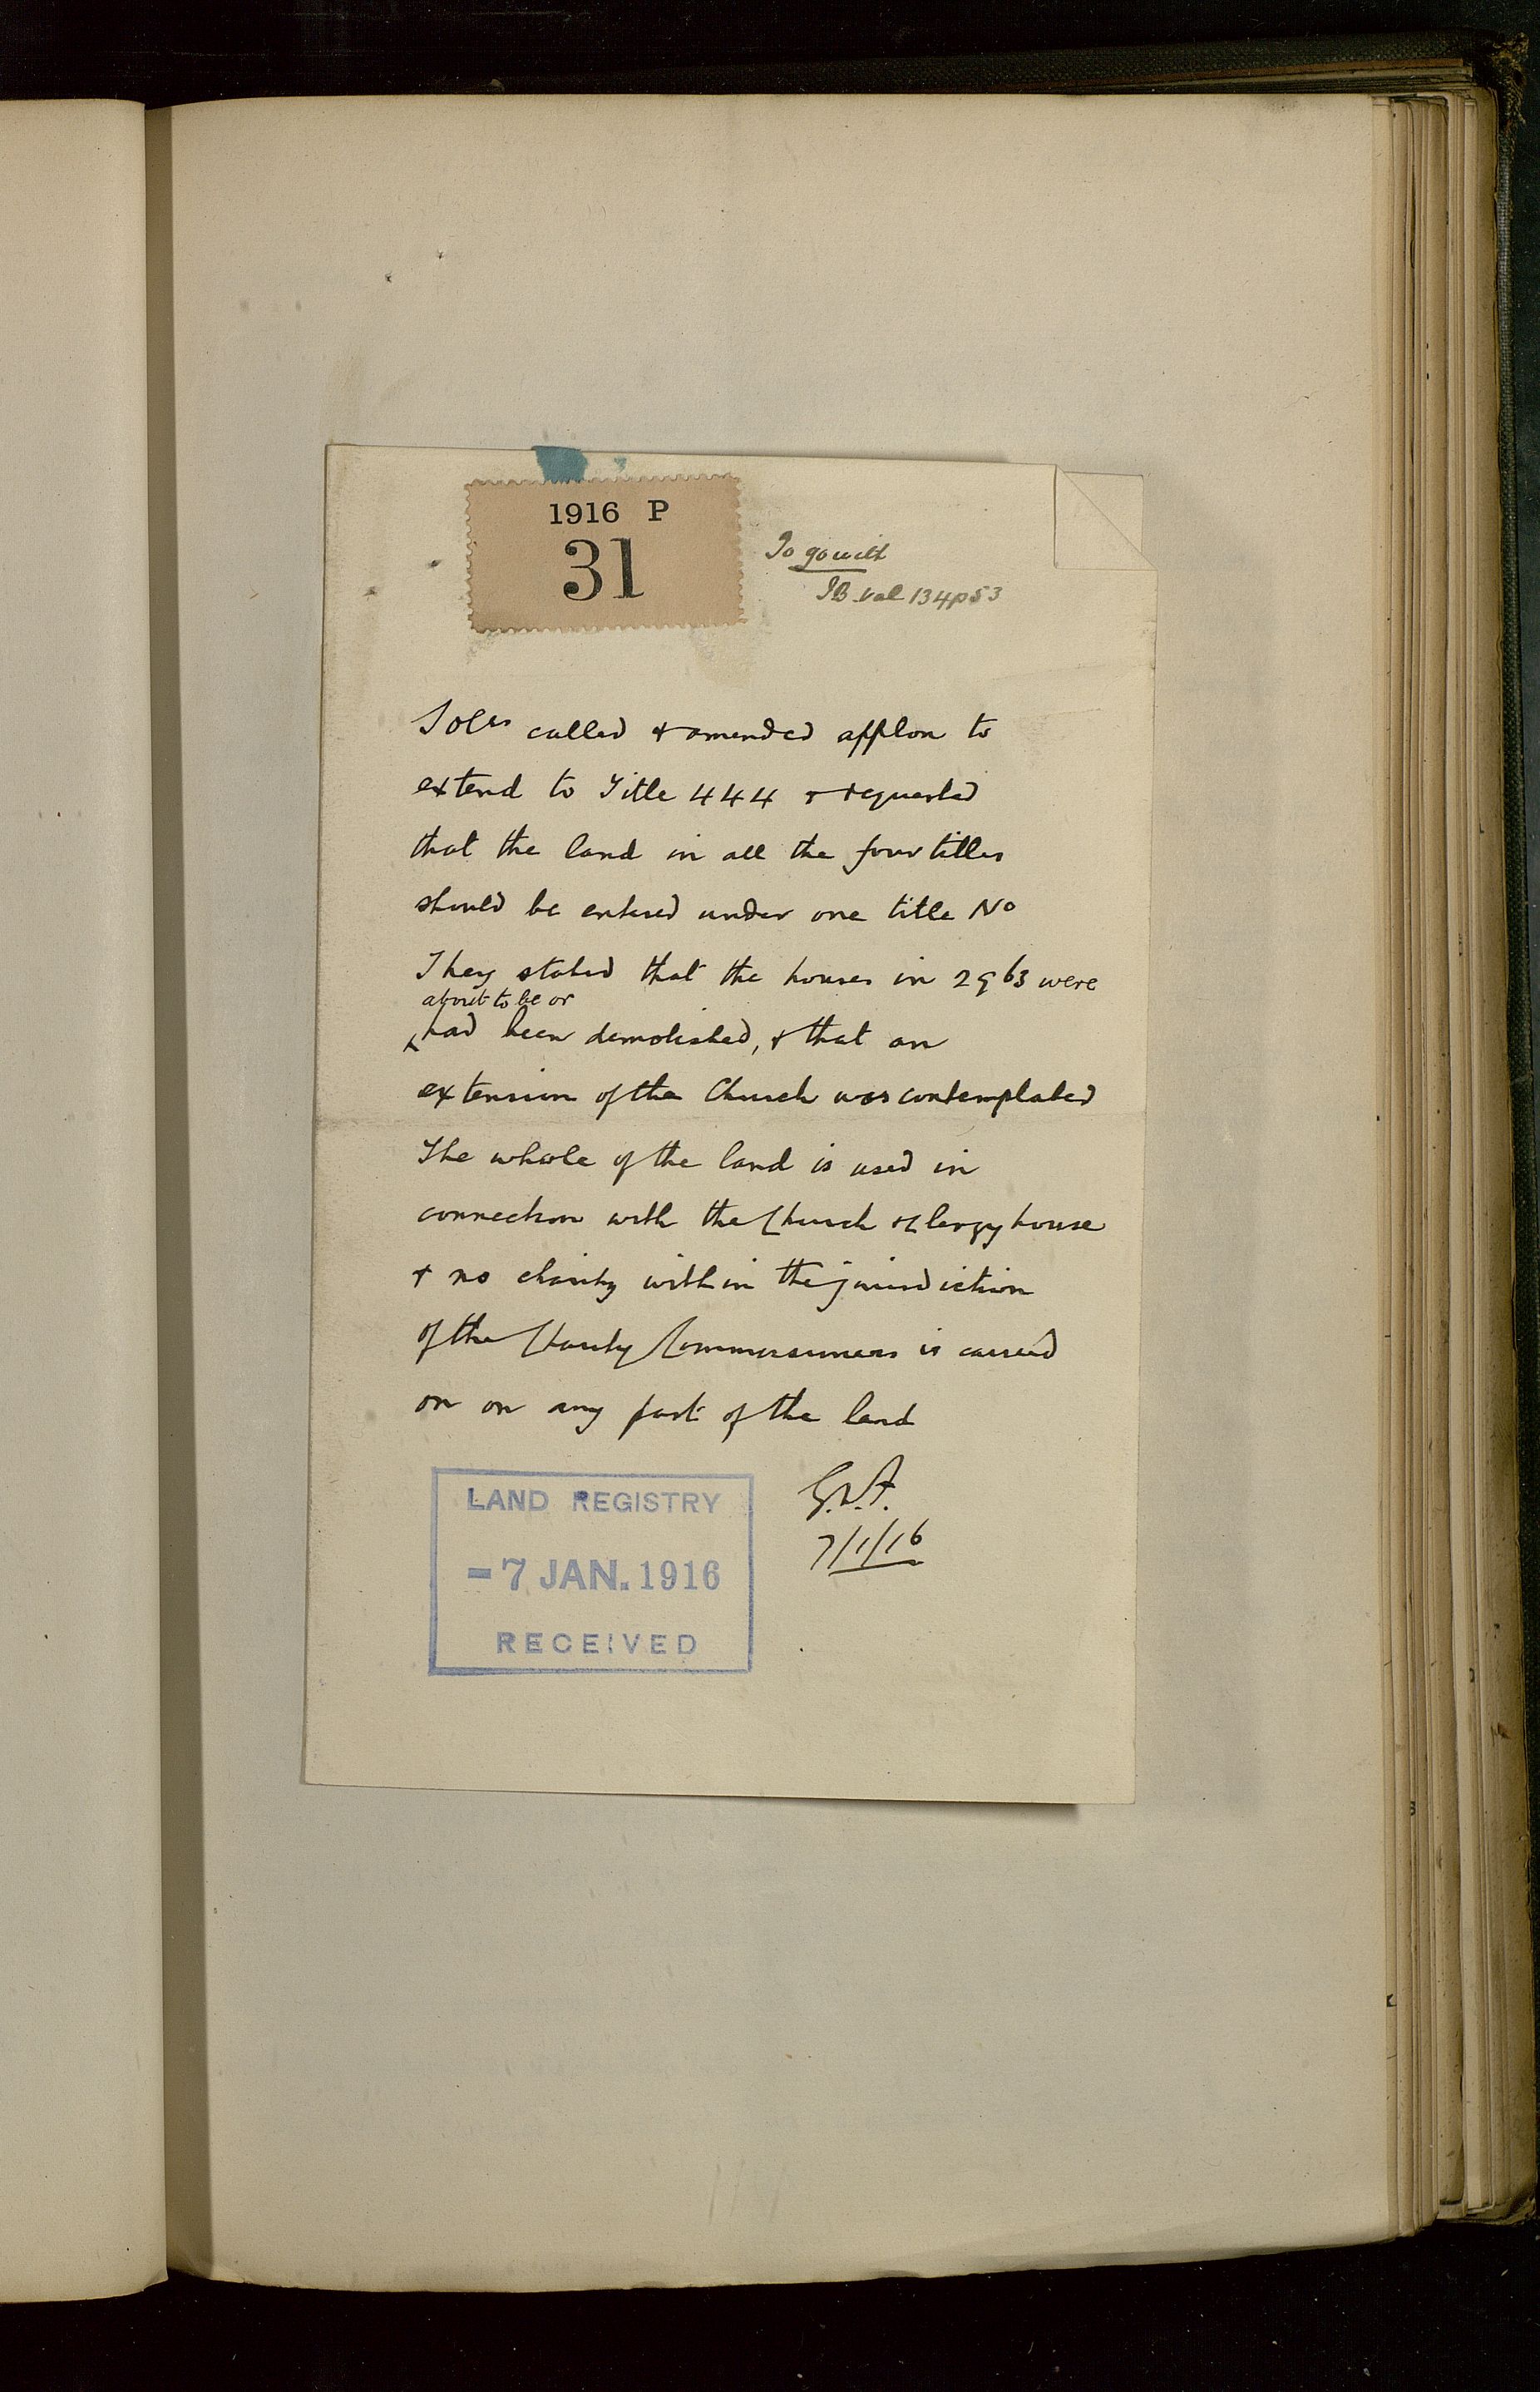 1916 P
31
To go with
IB vol 134 p 53
Solrs called & amended applon to
extend to Title 444 & requested
that the land in all the four titles
should be entered under one title No
They stated that the houses in 2963 were
about to be or
had been demolished, & that an
extension of the Church was contemplated
The whole of the land is used in
connection with the Church & Clergy house
& no charity within the jurisdiction
of the Charity Commissioners is carried
on on any part of the land
7/1/16
LAND REGISTRY
-7 JAN. 1916
RECEIVED